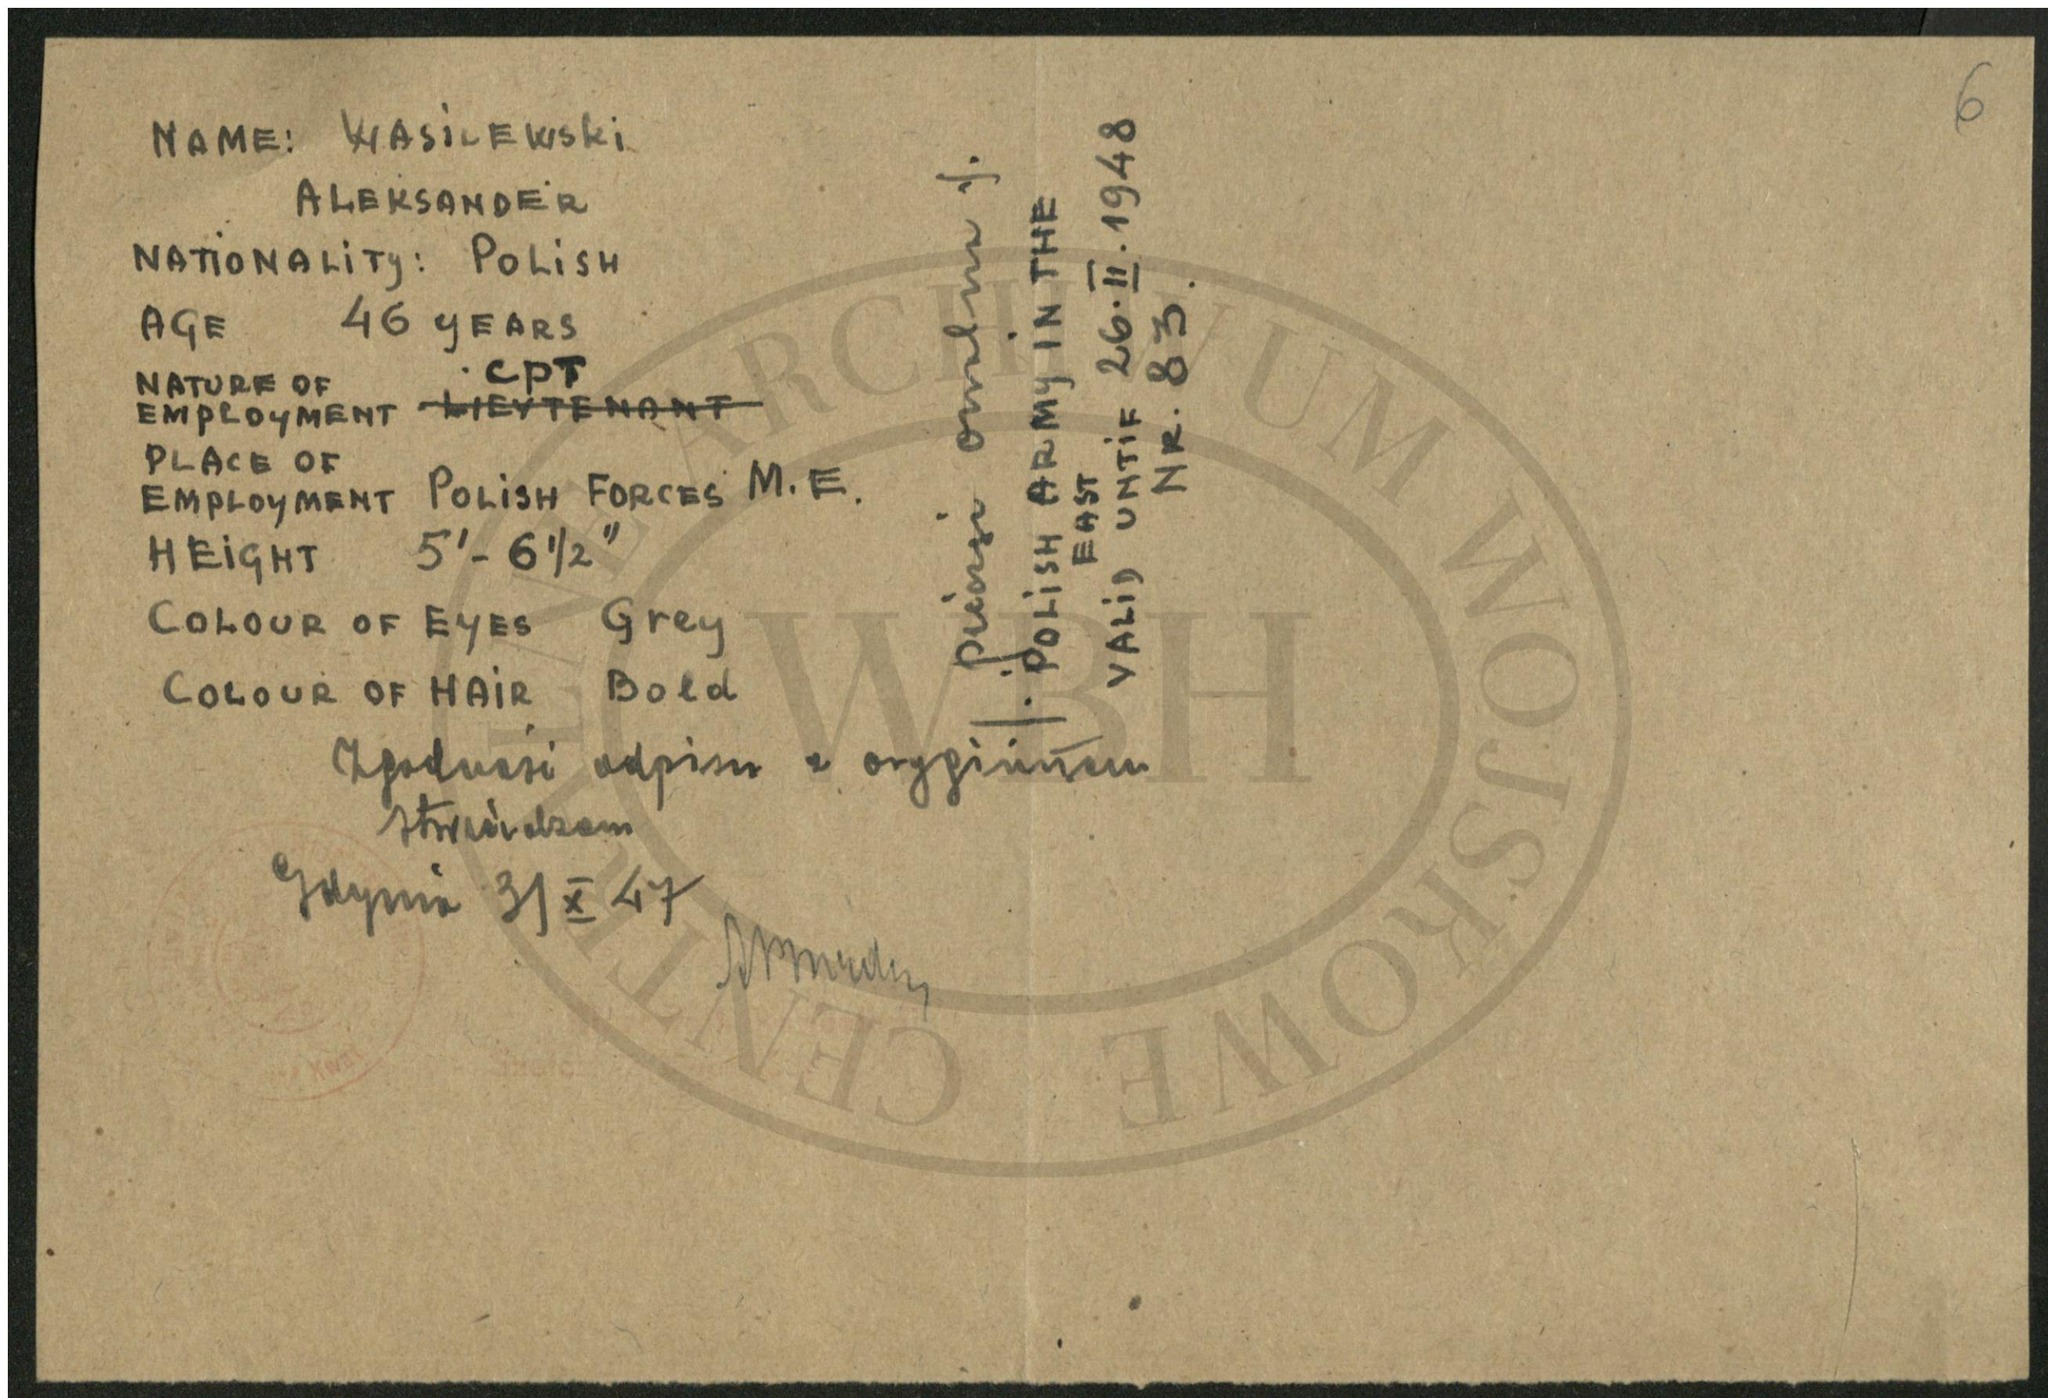 6
NAME: WASILEWSki
ALEKSANDER
NATIONALITY: POLISH
AGE 46 YEARS
CPT
NATURE OF
EMPLOYMENT LIEYTENANT
PLACE OF
EMPLOYMENT POLISH FORCES M.E.
HEIGHT 5'- 6 1/2"
COLOUR OF EYES Grey
COLOUR OF HAIR Bold
Zgodność odpisu z oryginałem
stwierdzam
Gdynia 31 X 47
pieczęć owalna
POLISH ARMY IN THE
EAST
VALID UNTIF 26.II.1948
NR. 83.
CENTRALNE ARCHIWUM WOJSKOWE
WBH